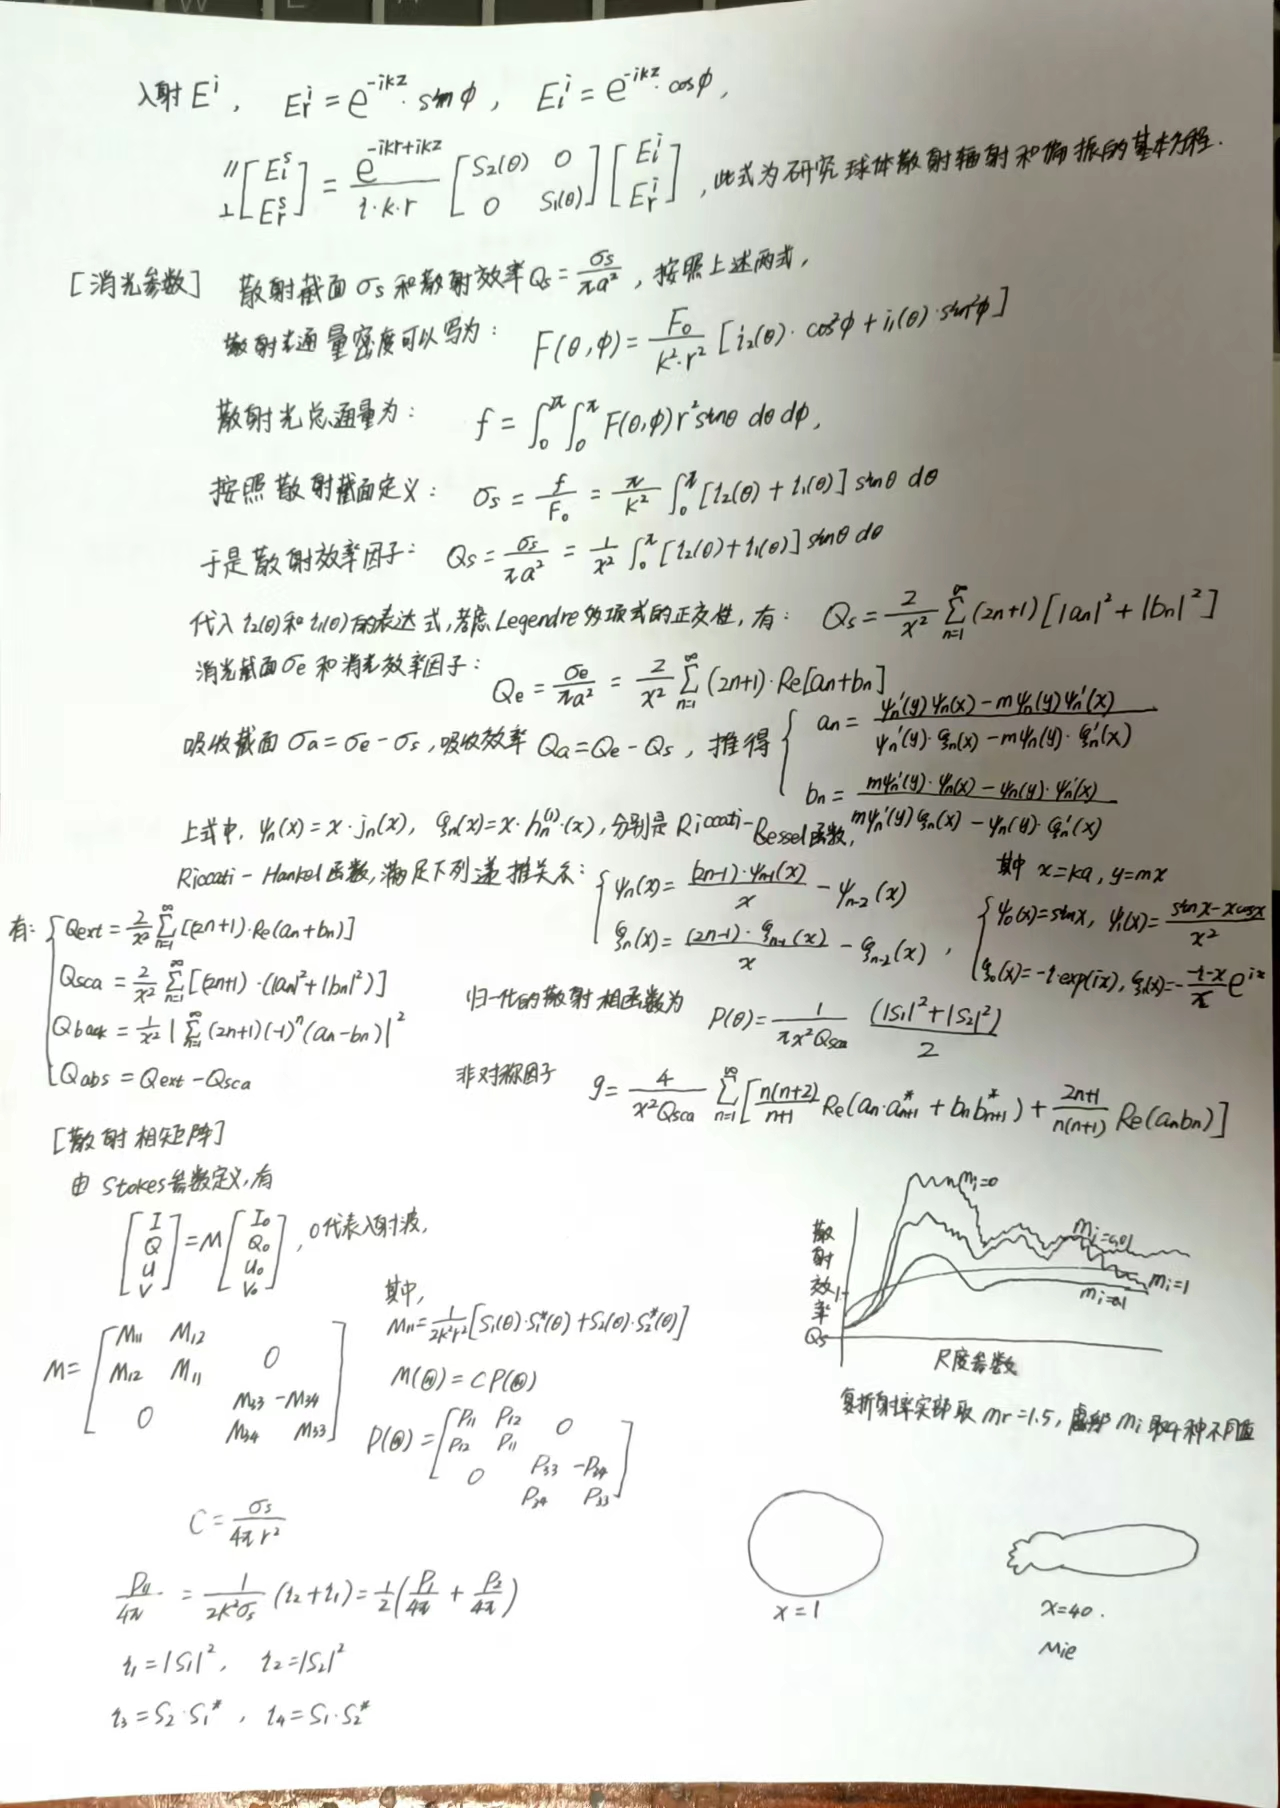 入射 Eⁱ, Erⁱ = e^(-ikz)·sinφ, Elⁱ = e^(-ikz)·cosφ,
∥⊥ [Elˢ; Erˢ] = e^(-ikr+ikz)/(i·k·r) [S₂(θ) 0; 0 S₁(θ)] [Elⁱ; Erⁱ], 此式为研究球体散射辐射和偏振的基本方程.
[消光参数] 散射截面 σs 和散射效率 Qs = σs/(πa²), 按照上述两式,
散射光通量密度可以写为: F(θ,φ) = F₀/(k²·r²) [i₂(θ)·cos²φ + i₁(θ)·sin²φ]
散射光总通量为: f = ∫₀^2π ∫₀^π F(θ,φ) r² sinθ dθ dφ,
按照散射截面定义: σs = f/F₀ = π/k² ∫₀^π [i₂(θ) + i₁(θ)] sinθ dθ
于是散射效率因子: Qs = σs/(πa²) = 1/x² ∫₀^π [i₂(θ) + i₁(θ)] sinθ dθ
代入 i₂(θ) 和 i₁(θ) 的表达式, 考虑 Legendre 多项式的正交性, 有: Qs = 2/x² Σ_(n=1)^∞ (2n+1) [|an|² + |bn|²]
消光截面 σe 和消光效率因子: Qe = σe/(πa²) = 2/x² Σ_(n=1)^∞ (2n+1)·Re[an+bn]
吸收截面 σa = σe - σs, 吸收效率 Qa = Qe - Qs, 推得 { an = (ψn'(y)ψn(x) - mψn(y)ψn'(x)) / (ψn'(y)·ξn(x) - mψn(y)·ξn'(x))
bn = (mψn'(y)·ψn(x) - ψn(y)·ψn'(x)) / (mψn'(y)ξn(x) - ψn(y)·ξn'(x))
上式中, ψn(x) = x·jn(x), ξn(x) = x·hn⁽¹⁾·(x), 分别是 Riccati-Bessel 函数,
Riccati-Hankel 函数, 满足下列递推关系: { ψn(x) = (2n-1)·ψn-1(x)/x - ψn-2(x)
ξn(x) = (2n-1)·ξn-1(x)/x - ξn-2(x),
其中 x = ka, y = mx
{ ψ₀(x) = sinx, ψ₁(x) = (sinx - xcosx)/x²
ξ₀(x) = -i·exp(ix), ξ₁(x) = (-i-x)/x e^(ix)
有: { Qext = 2/x² Σ_(n=1)^∞ [(2n+1)·Re(an+bn)]
Qsca = 2/x² Σ_(n=1)^∞ [(2n+1)·(|an|²+|bn|²)]
Qback = 1/x² |Σ_(n=1)^∞ (2n+1)(-1)ⁿ(an-bn)|²
Qabs = Qext - Qsca
归一化的散射相函数为 P(θ) = 1/(πx²Qsca) (|S₁|²+|S₂|²)/2
非对称因子 g = 4/(x²Qsca) Σ_(n=1)^∞ [n(n+2)/(n+1) Re(an·a*n+1 + bnb*n+1) + (2n+1)/(n(n+1)) Re(anbn)]
[散射相矩阵]
由 Stokes 参数定义, 有
[I; Q; U; V] = M [I₀; Q₀; U₀; V₀], 0代表入射波,
M = [M11 M12 0; M12 M11; 0 M33 -M34; M34 M33]
其中,
M11 = 1/(2k²r²) [S₁(θ)·S₁*(θ) + S₂(θ)·S₂*(θ)]
M(Θ) = C P(Θ)
P(Θ) = [P11 P12 0; P12 P11; 0 P33 -P34; P34 P33]
C = σs/(4πr²)
P11/4π = 1/(2k²σs) (i₂+i₁) = 1/2 (P₁/4π + P₂/4π)
i₁ = |S₁|², i₂ = |S₂|²
i₃ = S₂·S₁*, i₄ = S₁·S₂*
散射效率 Qs
1
mi=0
mi=0.01
mi=1
mi=0.1
尺度参数
复折射率实部取 mr = 1.5, 虚部 mi 取4种不同值
x = 1
x = 40.
Mie